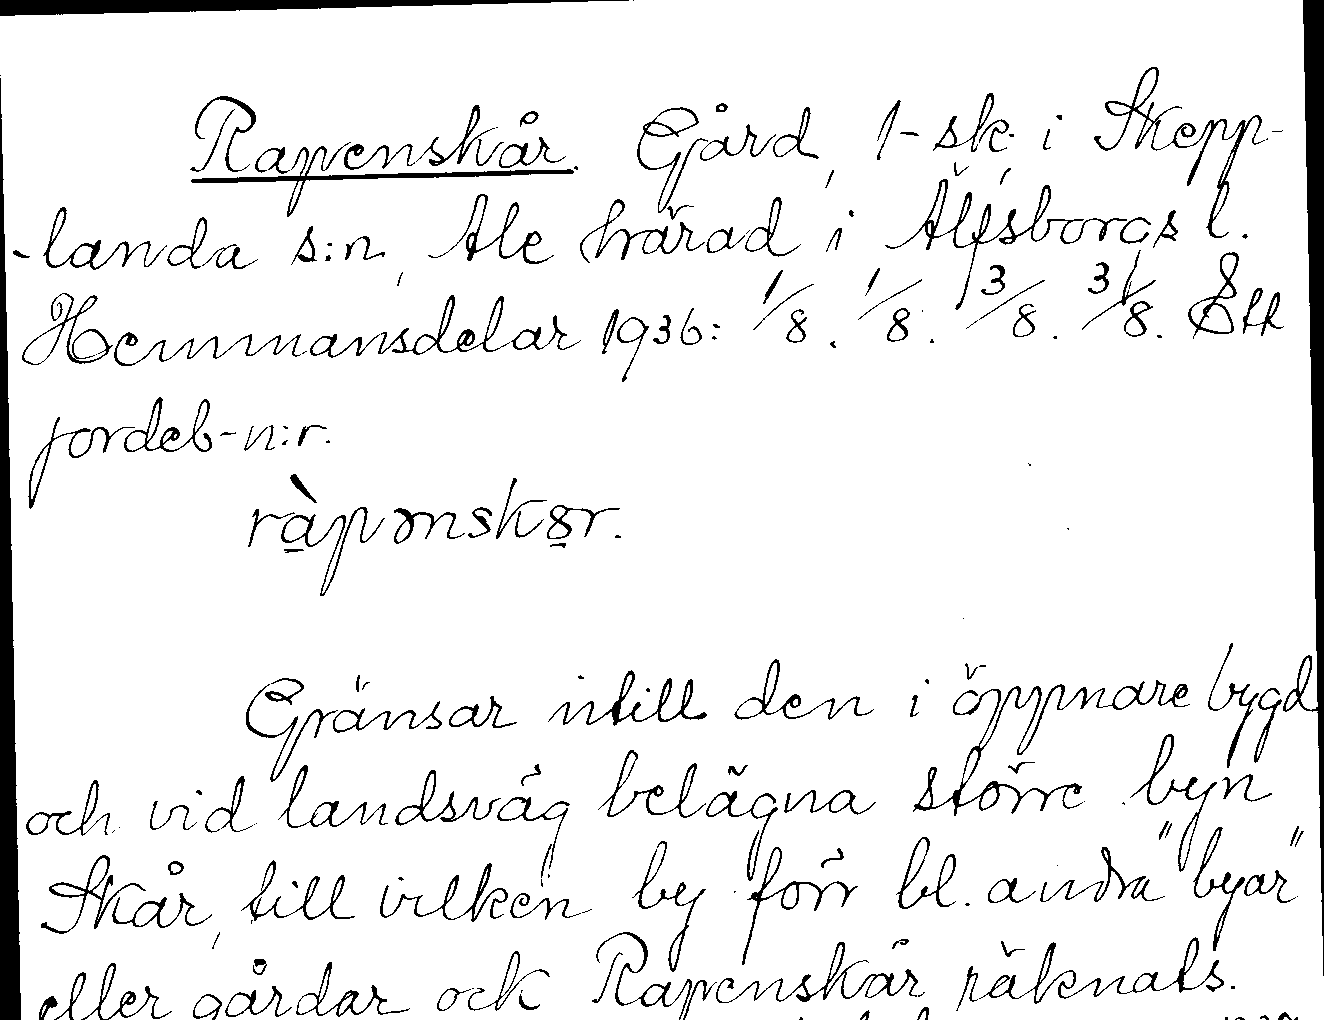 Rapenskår. Gård, 1-sk. i Skepp-
-landa s:n, Ale härad i Älfsborgs l.
Hemmansdelar 1936: 1/8. 1/8. 3/8. 3/8. Ett
jordeb-n:r.
ràpənskər.
Gränsar intill den i öppnare bygd
och vid landsväg belägna större byn
Skår, till vilken by förr bl. andra "byar"
eller gårdar ock Rapenskår räknats.